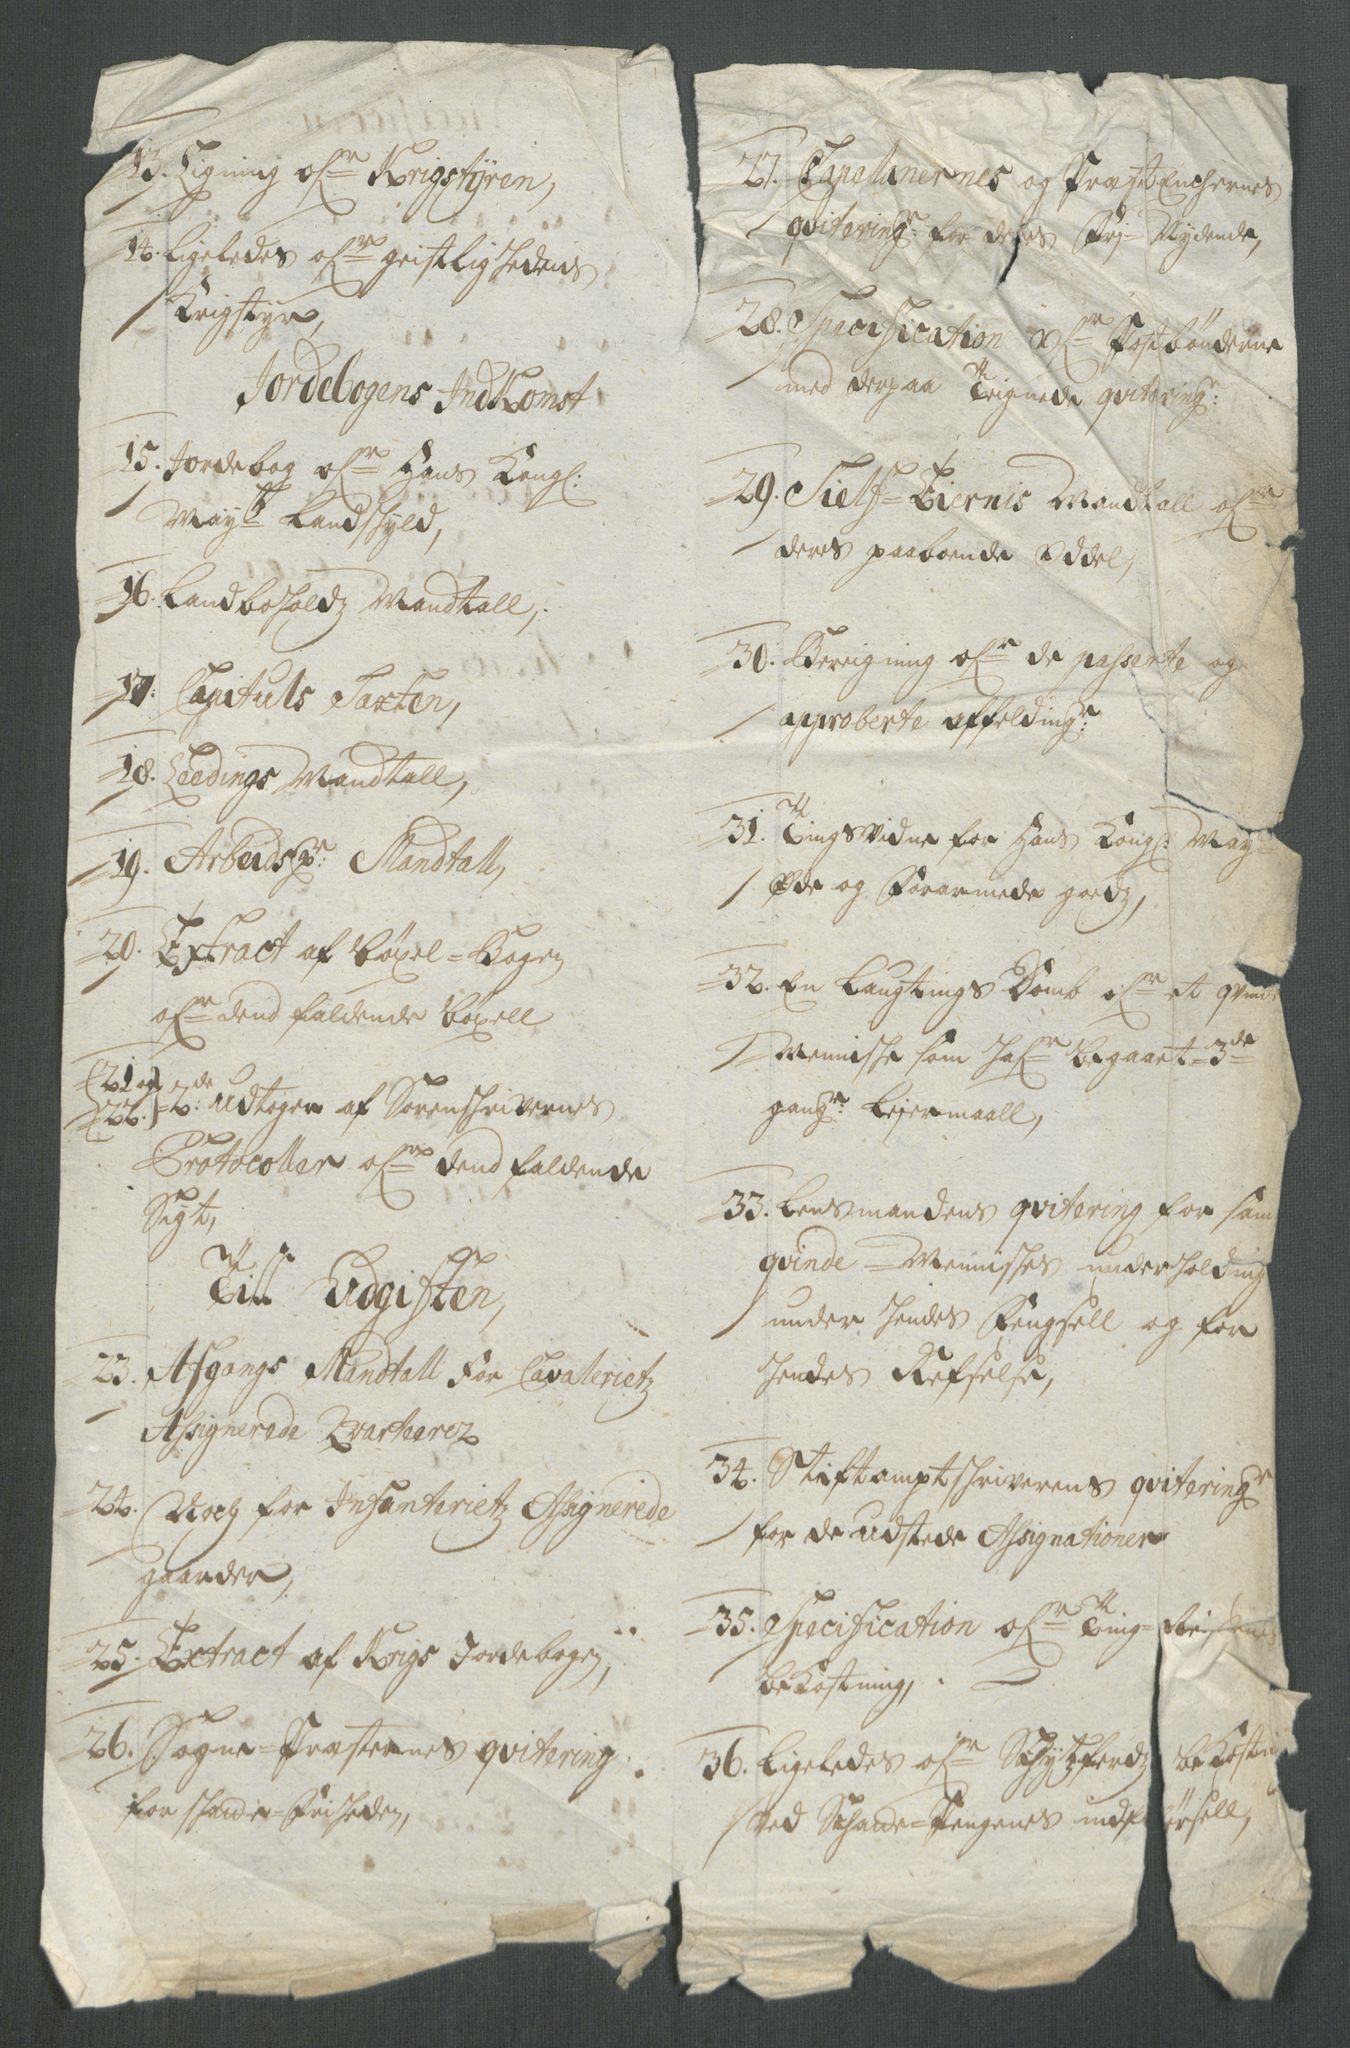 13. Ligning ofr Krigstÿren,
14. ligeledes ofr geistlighedens
Krigstÿr,
Jordebogens Indkomst
15. Jordebog ofr Hans Kongl:
Maytz Landskyld,
16. Landboholdz Mandtall,
17. Capituls Taxten,
18. Leedings Mandtall,
19. Arbeidspr: Mandtall,
20. Extract af böxel=Bogen
ofr dend faldende böxell
21 og
22. } 2de: udtoger af Sorenskrivernes
Protocoller ofr dend faldende
Sigt,
Till Udgiften,
23. Afgangs Mandtall for Cavalerietz
Assignerede Qvarterer
24. Noch for Infanterietz Assignerede
gaarder,
25. Extract af Krigs Jordebogen,
26. Sogne=Præsternes qvitering
for skade=friheden,
27. Capellanernes og Præst Enchernes
qviteringr: for deres frj=Nydende,
28. Specification ofr Postbönderne
med derpaa Teignede qviteringr:
29. Sielf=Eiernis Mandtall ofr
deres paaboende Oddel,
30. Bereigning ofr de passerte og
approberte affeldingr:
31. Tingsvidne for Hans Kongl: Maytz
Øde og forarmede goedz,
32. En Laugtings Domb ofr et qvinde
Menniske som hafr begaaet 3de
gangr: Lejermaall,
33. Lensmandens qvitering for sam
qvinde=Menniskes underholding
under hendes fengsell og for
hendes Refselse,
34. Stiftamptskriverens qviteringr
for de udstede Assignationer
35. Specification ofr Ting=Reisernes
bekostning,
36. Ligeledes ofr Skytzferdz bekostni
ved Schatte=Pengenes indförsell,